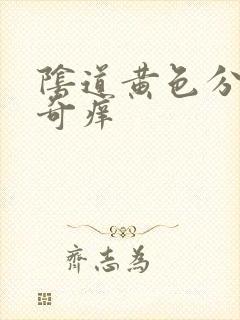 陰道黄色分
奇痒
齊志為